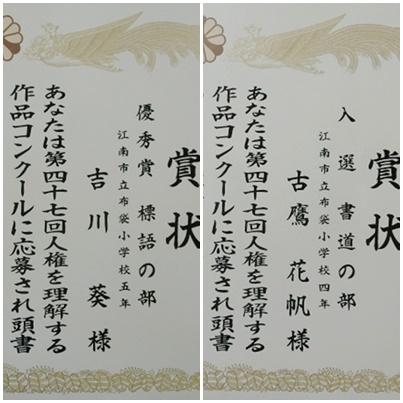 賞状
優秀賞 標語の部
江南市立布袋小学校五年
吉川 葵 様
あなたは第四十七回人権を理解する
作品コンクールに応募され頭書
賞状
入選 書道の部
江南市立布袋小学校四年
古鷹 花帆 様
あなたは第四十七回人権を理解する
作品コンクールに応募され頭書